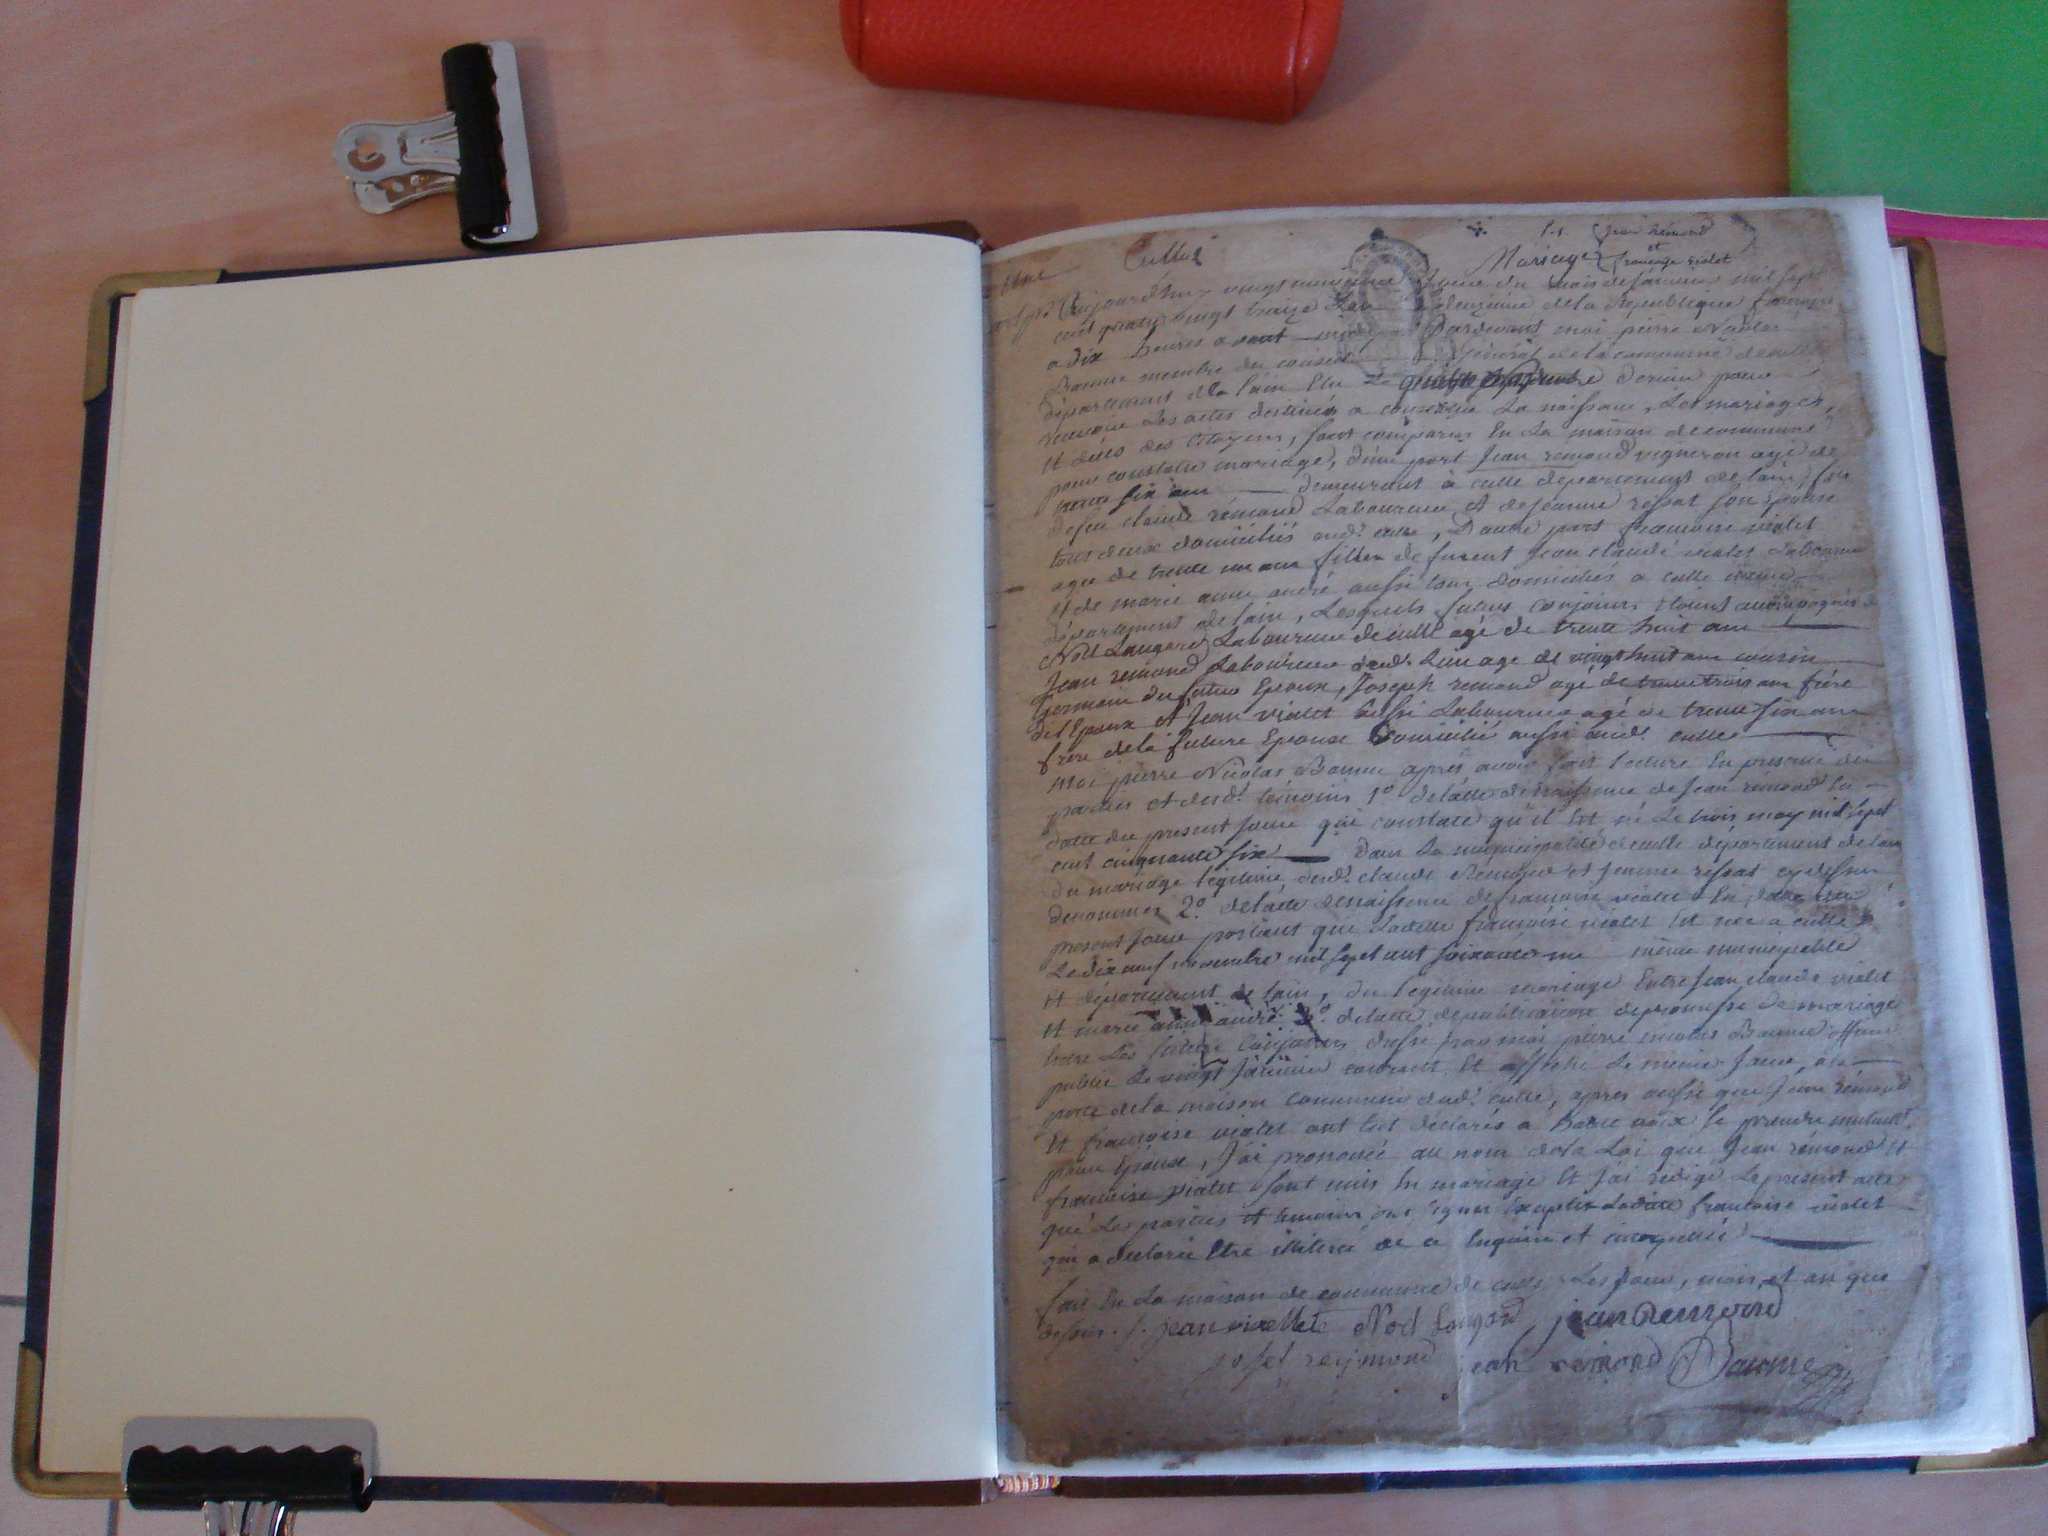 Culles
Jean Rémond
et
Mariage françoise violet
Aujourd'huy vingt jour du mois de janvier mil sept
cent quatre vingt traize L'an deuxieme de la Republique françoise
a dix heures avant midy Pardevant moi pierre Nicolas
Baume membre du conseil général de la commune de culle
département de l'ain Elu Le dernier pour
recevoir Les actes destinés a constater La naissance, Les mariages,
Et décés des Citoyens, sont comparus En La maison de commune
pour constater mariage, d'une part Jean remond vigneron agé de
trente six ans demeurant à culle département de l'ain, fils
de feu claude rémond Laboureur Et de jeanne ressat son épouse
tous deux domiciliés aud.t culle, D'autre part françoise violet
agée de trente un ans fille de furent Jean claude violet Laboureur
et de marie anne andré aussi tous domiciliés a culle même
département de l'ain, Lesquels futurs conjoints étoient accompagnés de
Noel Laugard Laboureur de culle agé de trente huit ans
Jean remond Laboureur dud.t Lieu age de vingt huit ans cousin
germain du futur Epoux, Joseph remond agé de trente trois ans frère
dit Epoux Et Jean violet aussi Laboureur agé de trente six ans
frère de la future Epouse Domicilié aussi aud.t culle
Moi pierre Nicolas Baume après avoir fait lecture En presence des
parties et desd.t témoins 1° de l'acte de naissance de Jean rémond En
datte du present jour qui constate qu'il Est né Le trois may mil sept
cent cinquante six Dans La municipalité de culle département de l'ain
du mariage légitime dud.t claude Remond Et Jeanne ressat cy dessus
denommés 2° de l'acte de naissance de francoise violet En date du
present Jour portant que Laditte françoise violet Est née a culle
Le dix neuf novembre mil sept cent soixante un même municipalité
Et département de l'ain, du legitime mariage Entre Jean claude violet
Et marie anne andré 3° de l'acte de publication de promesse de mariage
Entre Les futurs Conjoints dressé par moi pierre nicolas Baume officier
public Le vingt janvier courant Et affiché Le même Jour, a la
porte de la maison commune dud.t culle, apres aussi que Jean rémond
Et françoise violet ont Eut déclarés a haute voix se prendre mutuell.t
pour Epoux, J'ai prononcé au nom de la Loi que Jean rémond Et
françoise violet sont unis En mariage Et J'ai redigé Le present acte
que Les parties et temoins ont signés Exceptée Ladite françoise violet
qui a declarée Etre illiteré de ce Enquise et interpellée
fait En La maison de commune de culle Les jour, mois, et an que
dessus. jean viollet Noel Laugard jean Remond
josef reymond jean remond Baume